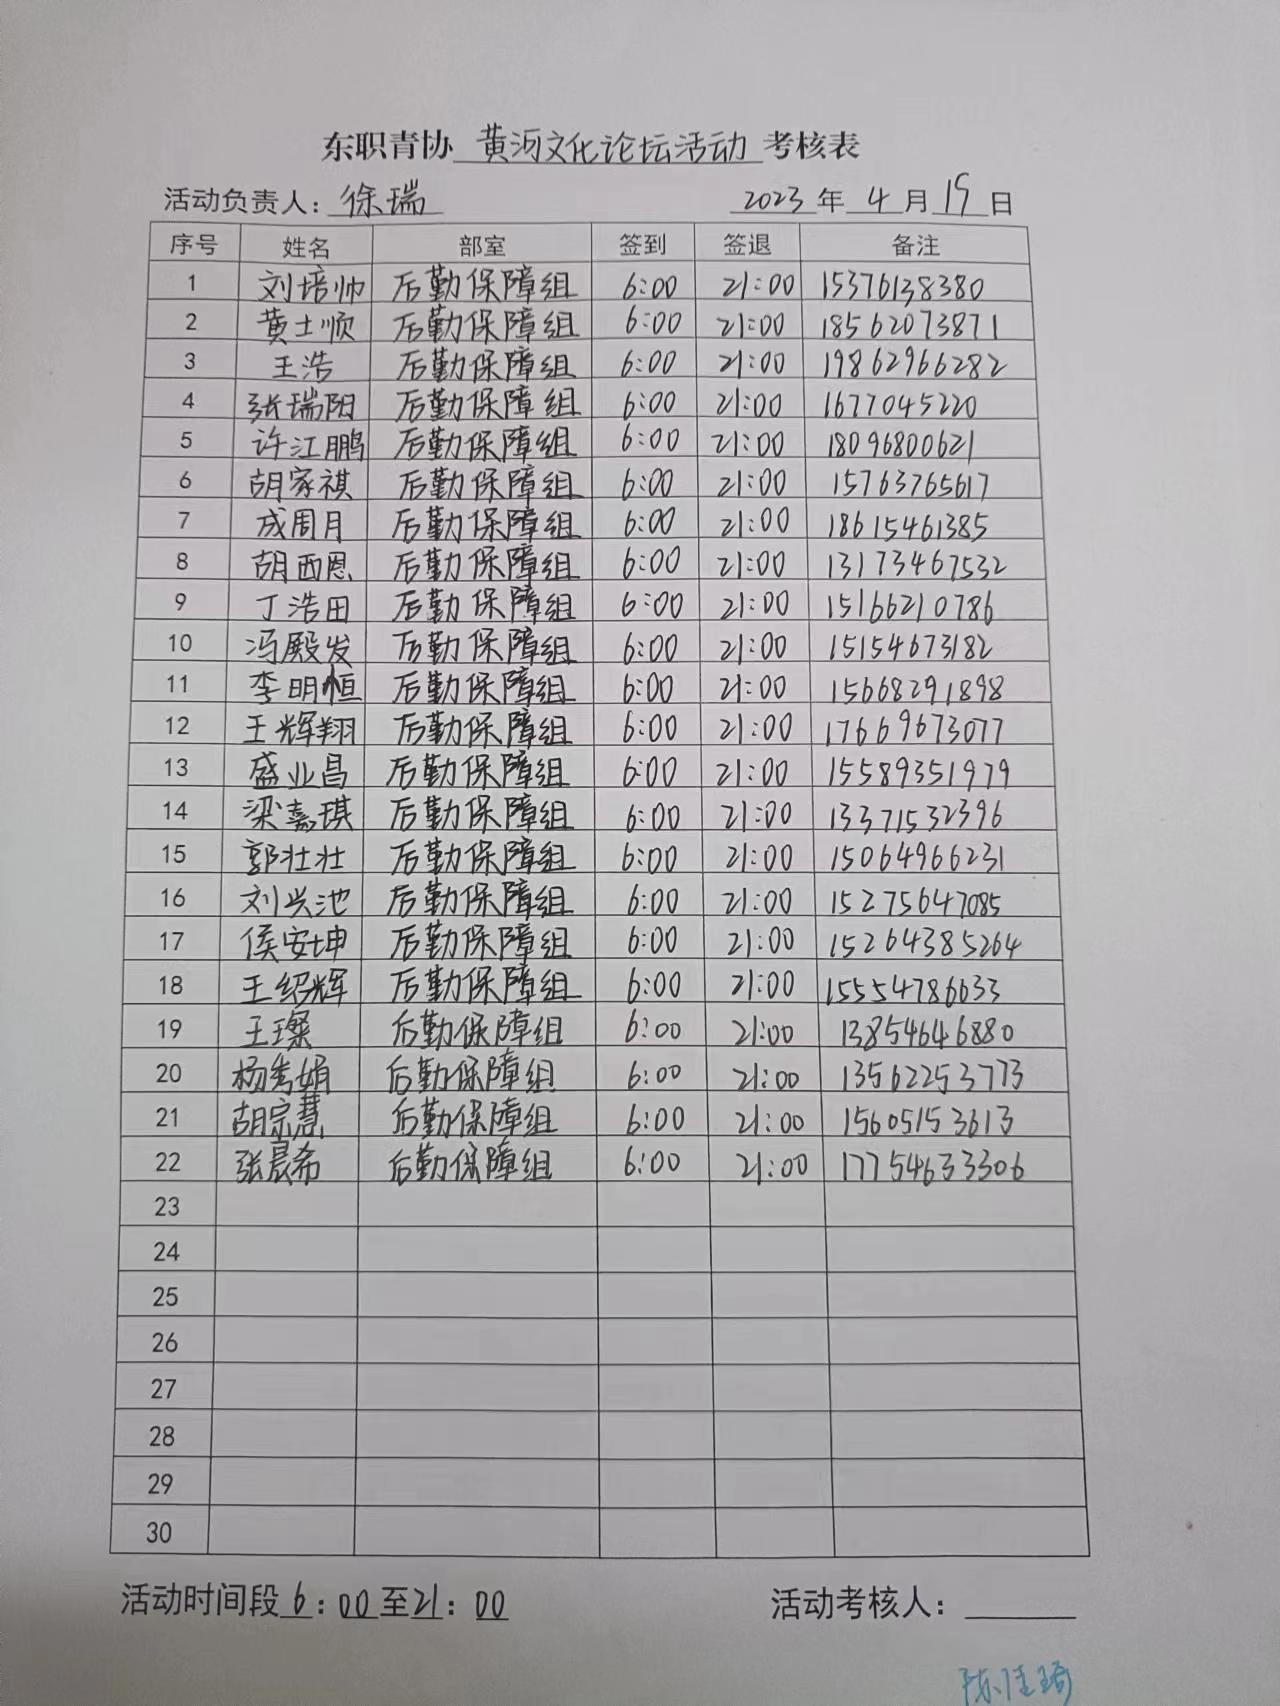 东职青协 黄河文化论坛活动 考核表
活动负责人：徐瑞 2023 年 4 月 15 日
序号 姓名 部室 签到 签退 备注
1 刘培帅 后勤保障组 6:00 21:00 15376138380
2 黄士顺 后勤保障组 6:00 21:00 18562073871
3 王浩 后勤保障组 6:00 21:00 19862966282
4 张瑞阳 后勤保障组 6:00 21:00 1677045220
5 许江鹏 后勤保障组 6:00 21:00 18096800621
6 胡家祺 后勤保障组 6:00 21:00 15763765617
7 成周月 后勤保障组 6:00 21:00 18615461385
8 胡西恩 后勤保障组 6:00 21:00 13173467532
9 丁浩田 后勤保障组 6:00 21:00 15166210786
10 冯殿发 后勤保障组 6:00 21:00 15154673182
11 李明恒 后勤保障组 6:00 21:00 15668291898
12 王辉翔 后勤保障组 6:00 21:00 17669673077
13 盛业昌 后勤保障组 6:00 21:00 15589351979
14 梁嘉琪 后勤保障组 6:00 21:00 13371532396
15 郭壮壮 后勤保障组 6:00 21:00 15064966231
16 刘兴池 后勤保障组 6:00 21:00 15275647085
17 侯安坤 后勤保障组 6:00 21:00 15264385264
18 王绍辉 后勤保障组 6:00 21:00 15554786633
19 王璨 后勤保障组 6:00 21:00 13854646880
20 杨秀娟 后勤保障组 6:00 21:00 13562253773
21 胡宗慧 后勤保障组 6:00 21:00 15605153613
22 张晨希 后勤保障组 6:00 21:00 17754633306
23
24
25
26
27
28
29
30
活动时间段 6：00 至 21：00 活动考核人：
陈佳琦